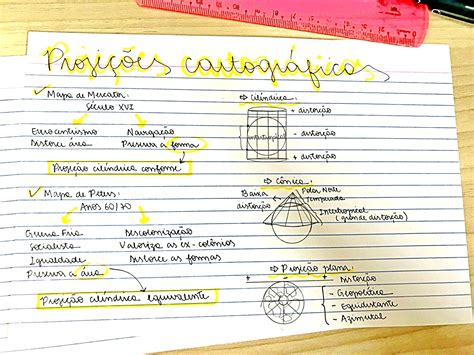 Projeções cartográficas
✓ Mapa de Mercator:
Século XVI
Eurocentrismo
Distorce área
Navegação
Preserva a forma
Projeção cilíndrica conforme
✓ Mapa de Peters:
Anos 60/70
Guerra Fria
Socialista
Igualdade
Preserva a área
Descolonização
Valoriza as ex-colônias
Distorce as formas
Projeção cilíndrica equivalente
⇒ Cilíndrica:
+ distorção
- distorção
+ distorção
Intertropical
⇒ Cônica:
Baixa
distorção
Polar Norte
Temperada
Intertropical
(grande distorção)
⇒ Projeção plana:
+ - +
Distorção
- Geopolítica
- Equidistante
- Azimutal